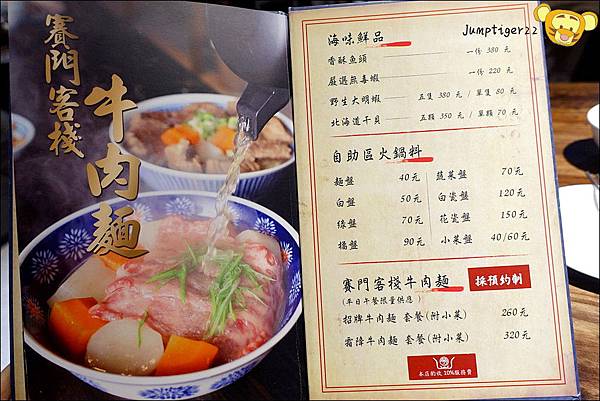 賽門客棧
牛肉麵
Jumptiger22
海味鮮品
香酥魚頭 一份 380 元
嚴選無毒蝦 一份 220 元
野生大明蝦 五隻 380 元 / 單隻 80 元
北海道干貝 五顆 350 元 / 單顆 70 元
自助區火鍋料
麵盤 40元
白盤 50元
綠盤 70元
橘盤 90元
蔬菜盤 70元
白瓷盤 120元
花瓷盤 150元
小菜盤 40/60元
賽門客棧牛肉麵 採預約制
(平日午餐限量供應)
招牌牛肉麵 套餐(附小菜) 260元
霜降牛肉麵 套餐(附小菜) 320元
本店酌收 10%服務費